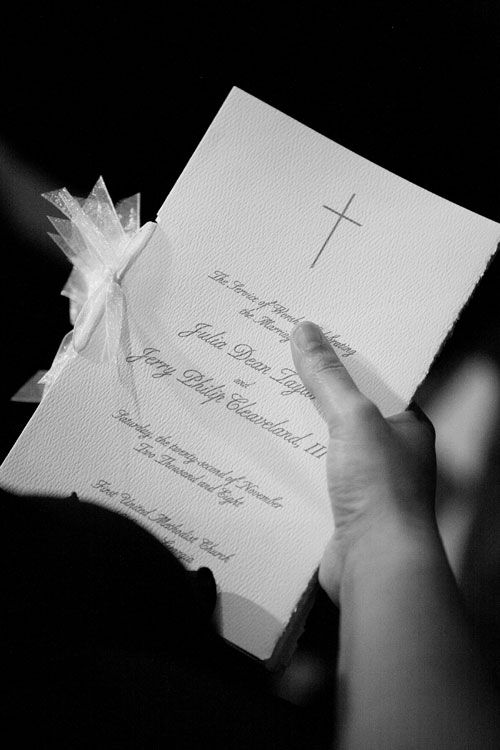 The Service of Worship Celebrating
the Marriage
Julia Dean Taylor
and
Jerry Philip Cleaveland, III
Saturday, the twenty second of November
Two Thousand and Eight
First United Methodist Church
Georgia